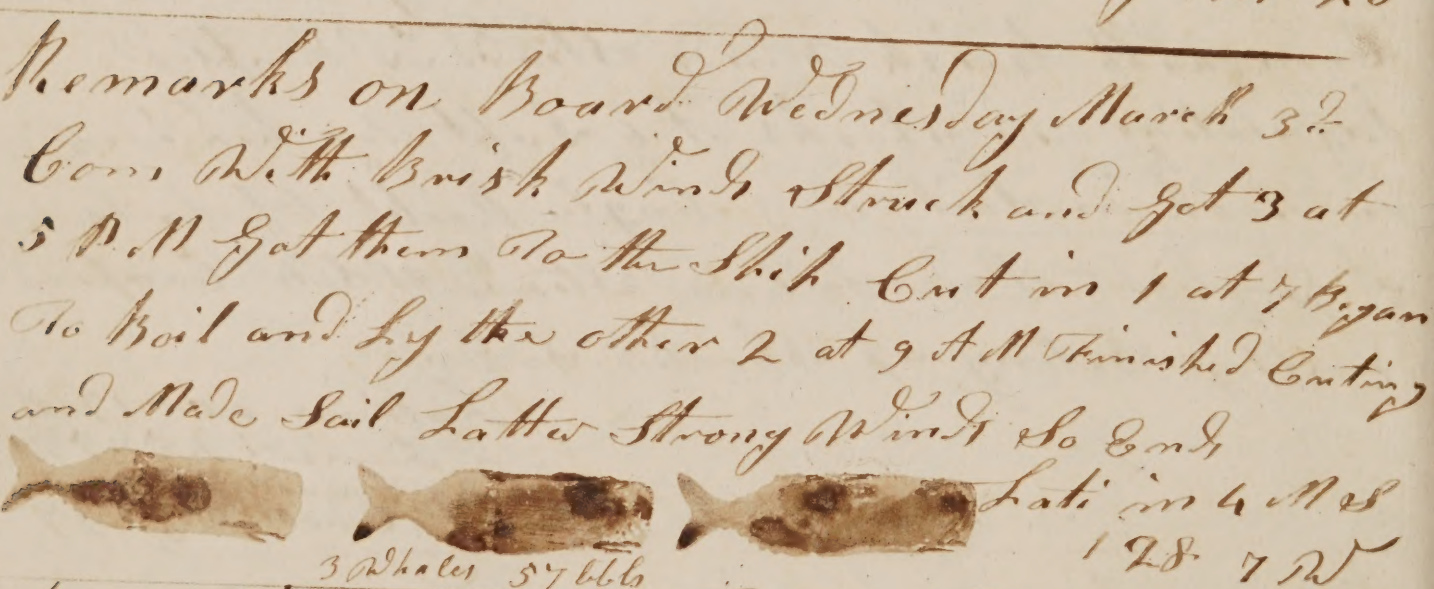 Remarks on Board Wednesday March 3d
Com With Brisk Winds Struck and Got 3 at
5 P M Got them To the Ship Cut in 1 at 7 Began
To Boil and Ly the other 2 at 9 A M Finished Cuting
and Made Sail Latter Strong Winds So Ends
Lati in 4 M S
128 7 W
3 Whales 57 bbls